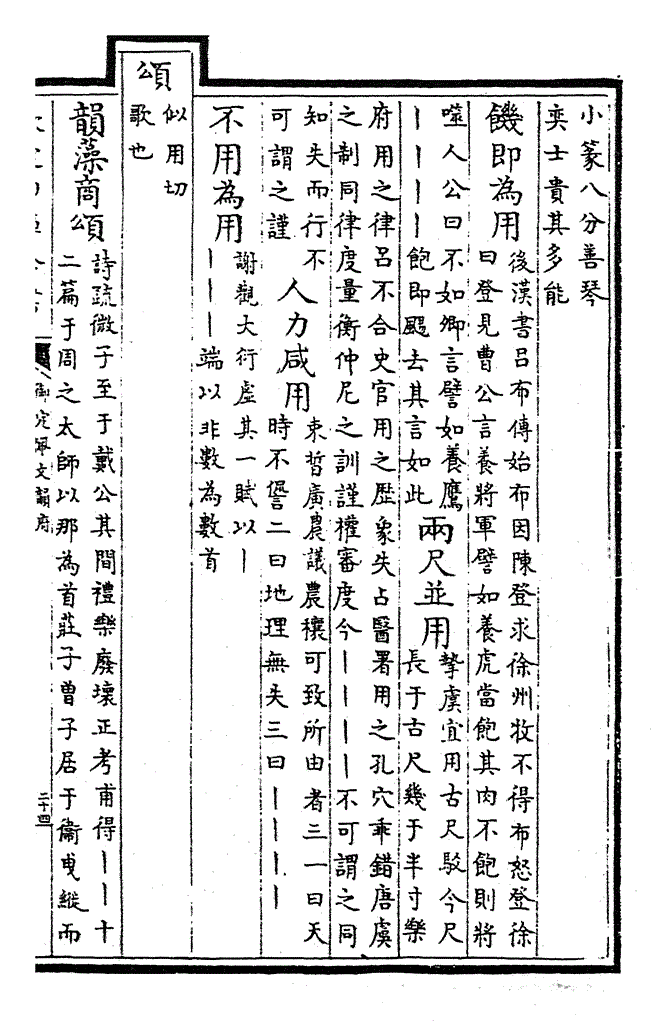 小篆八分善琴
奕士貴其多能
饑即為用
後漢書呂布傳始布因陳登求徐州牧不得布怒登徐
曰登見曹公言養將軍譬如養虎當飽其肉不飽則將
噬人公曰不如卿言譬如養鷹
｜｜｜｜飽即颺去其言如此
兩尺並用
摯虞宜用古尺駁今尺
長于古尺幾于半寸樂
府用之律呂不合史官用之歴象失占醫署用之孔穴乖錯唐虞
之制同律度量衡仲尼之訓謹權審度今｜｜｜｜不可謂之同
知失而行不
可謂之謹
人力咸用
束晳廣農議農穰可致所由者三一曰天
時不諐二曰地理無失三曰｜｜｜｜
不用為用
謝觀大衍虛其一賦以｜
｜｜｜端以非數為數首
頌
似用切
歌也
韻藻商頌
詩疏微子至于戴公其間禮樂廢壞正考甫得｜｜十
二篇于周之太師以那為首莊子曾子居于衞曳縱而
御定佩文韻府
二十四